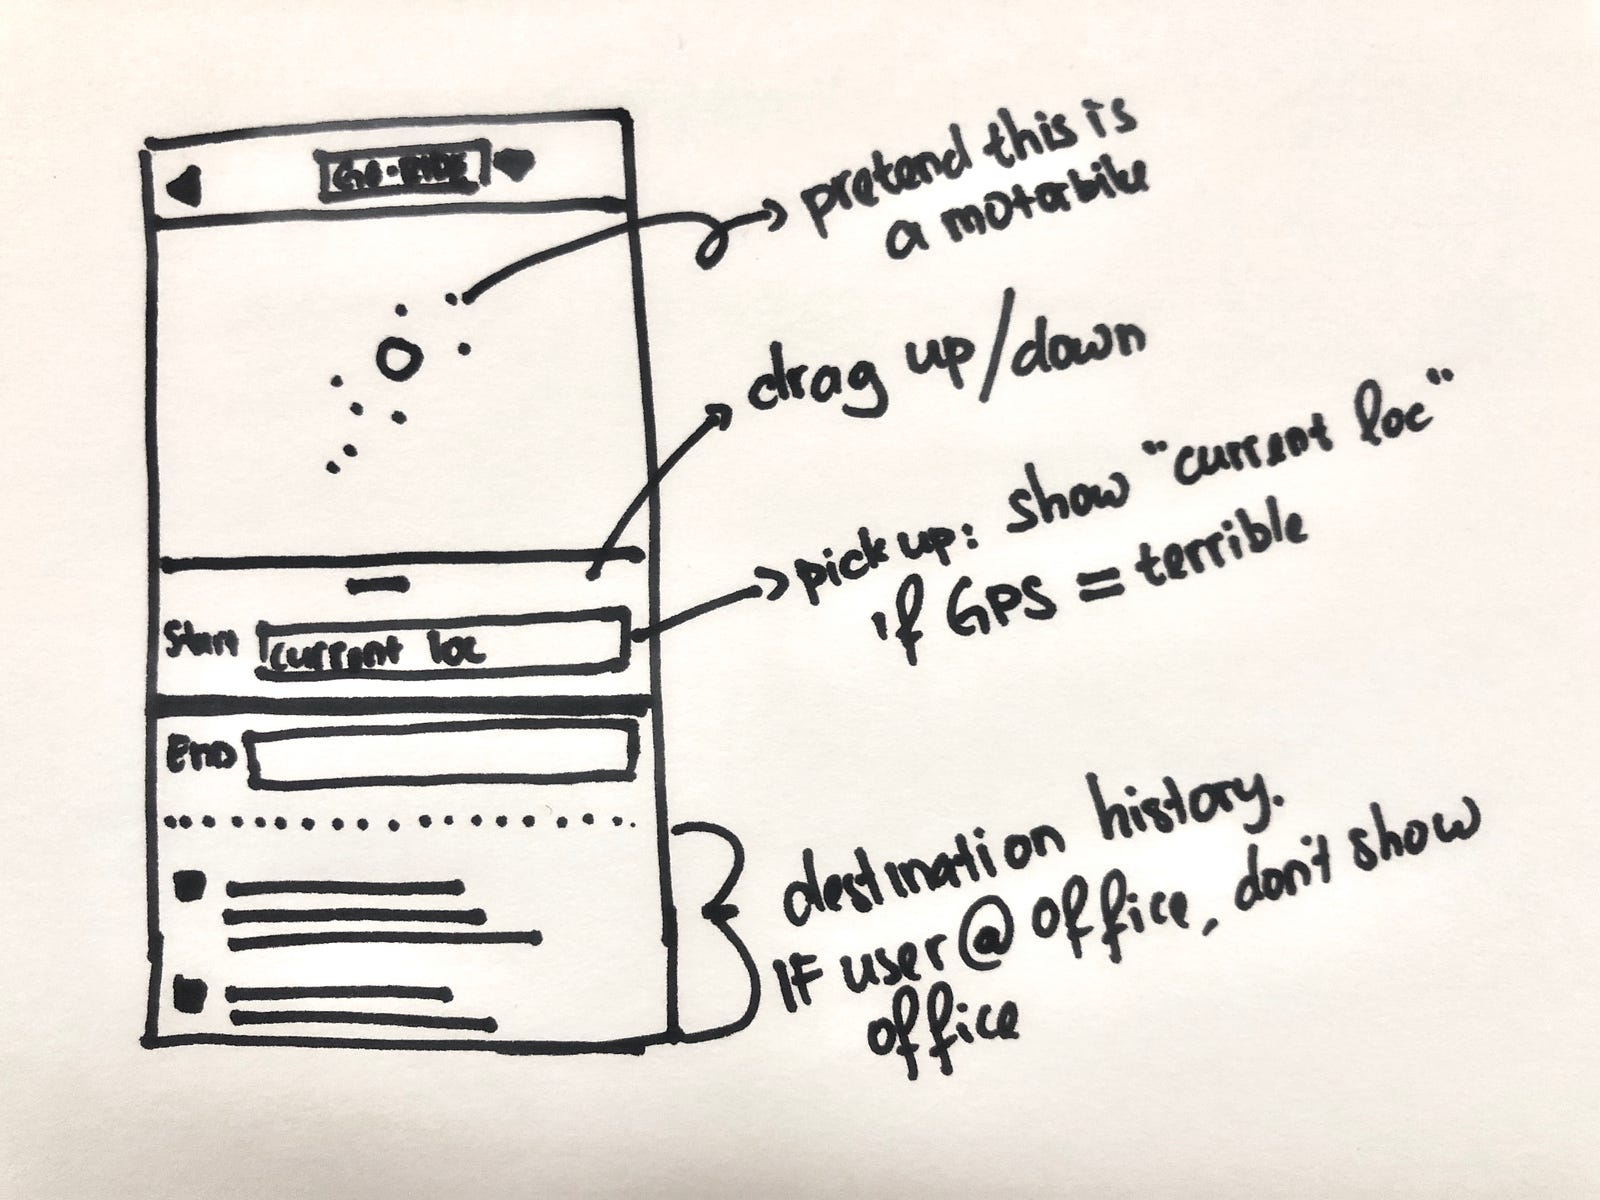 GO-RIDE
pretend this is
a motorbike
drag up/down
pick up: show "current loc"
if GPS = terrible
Start current loc
End
destination history.
IF user @ office, don't show
office